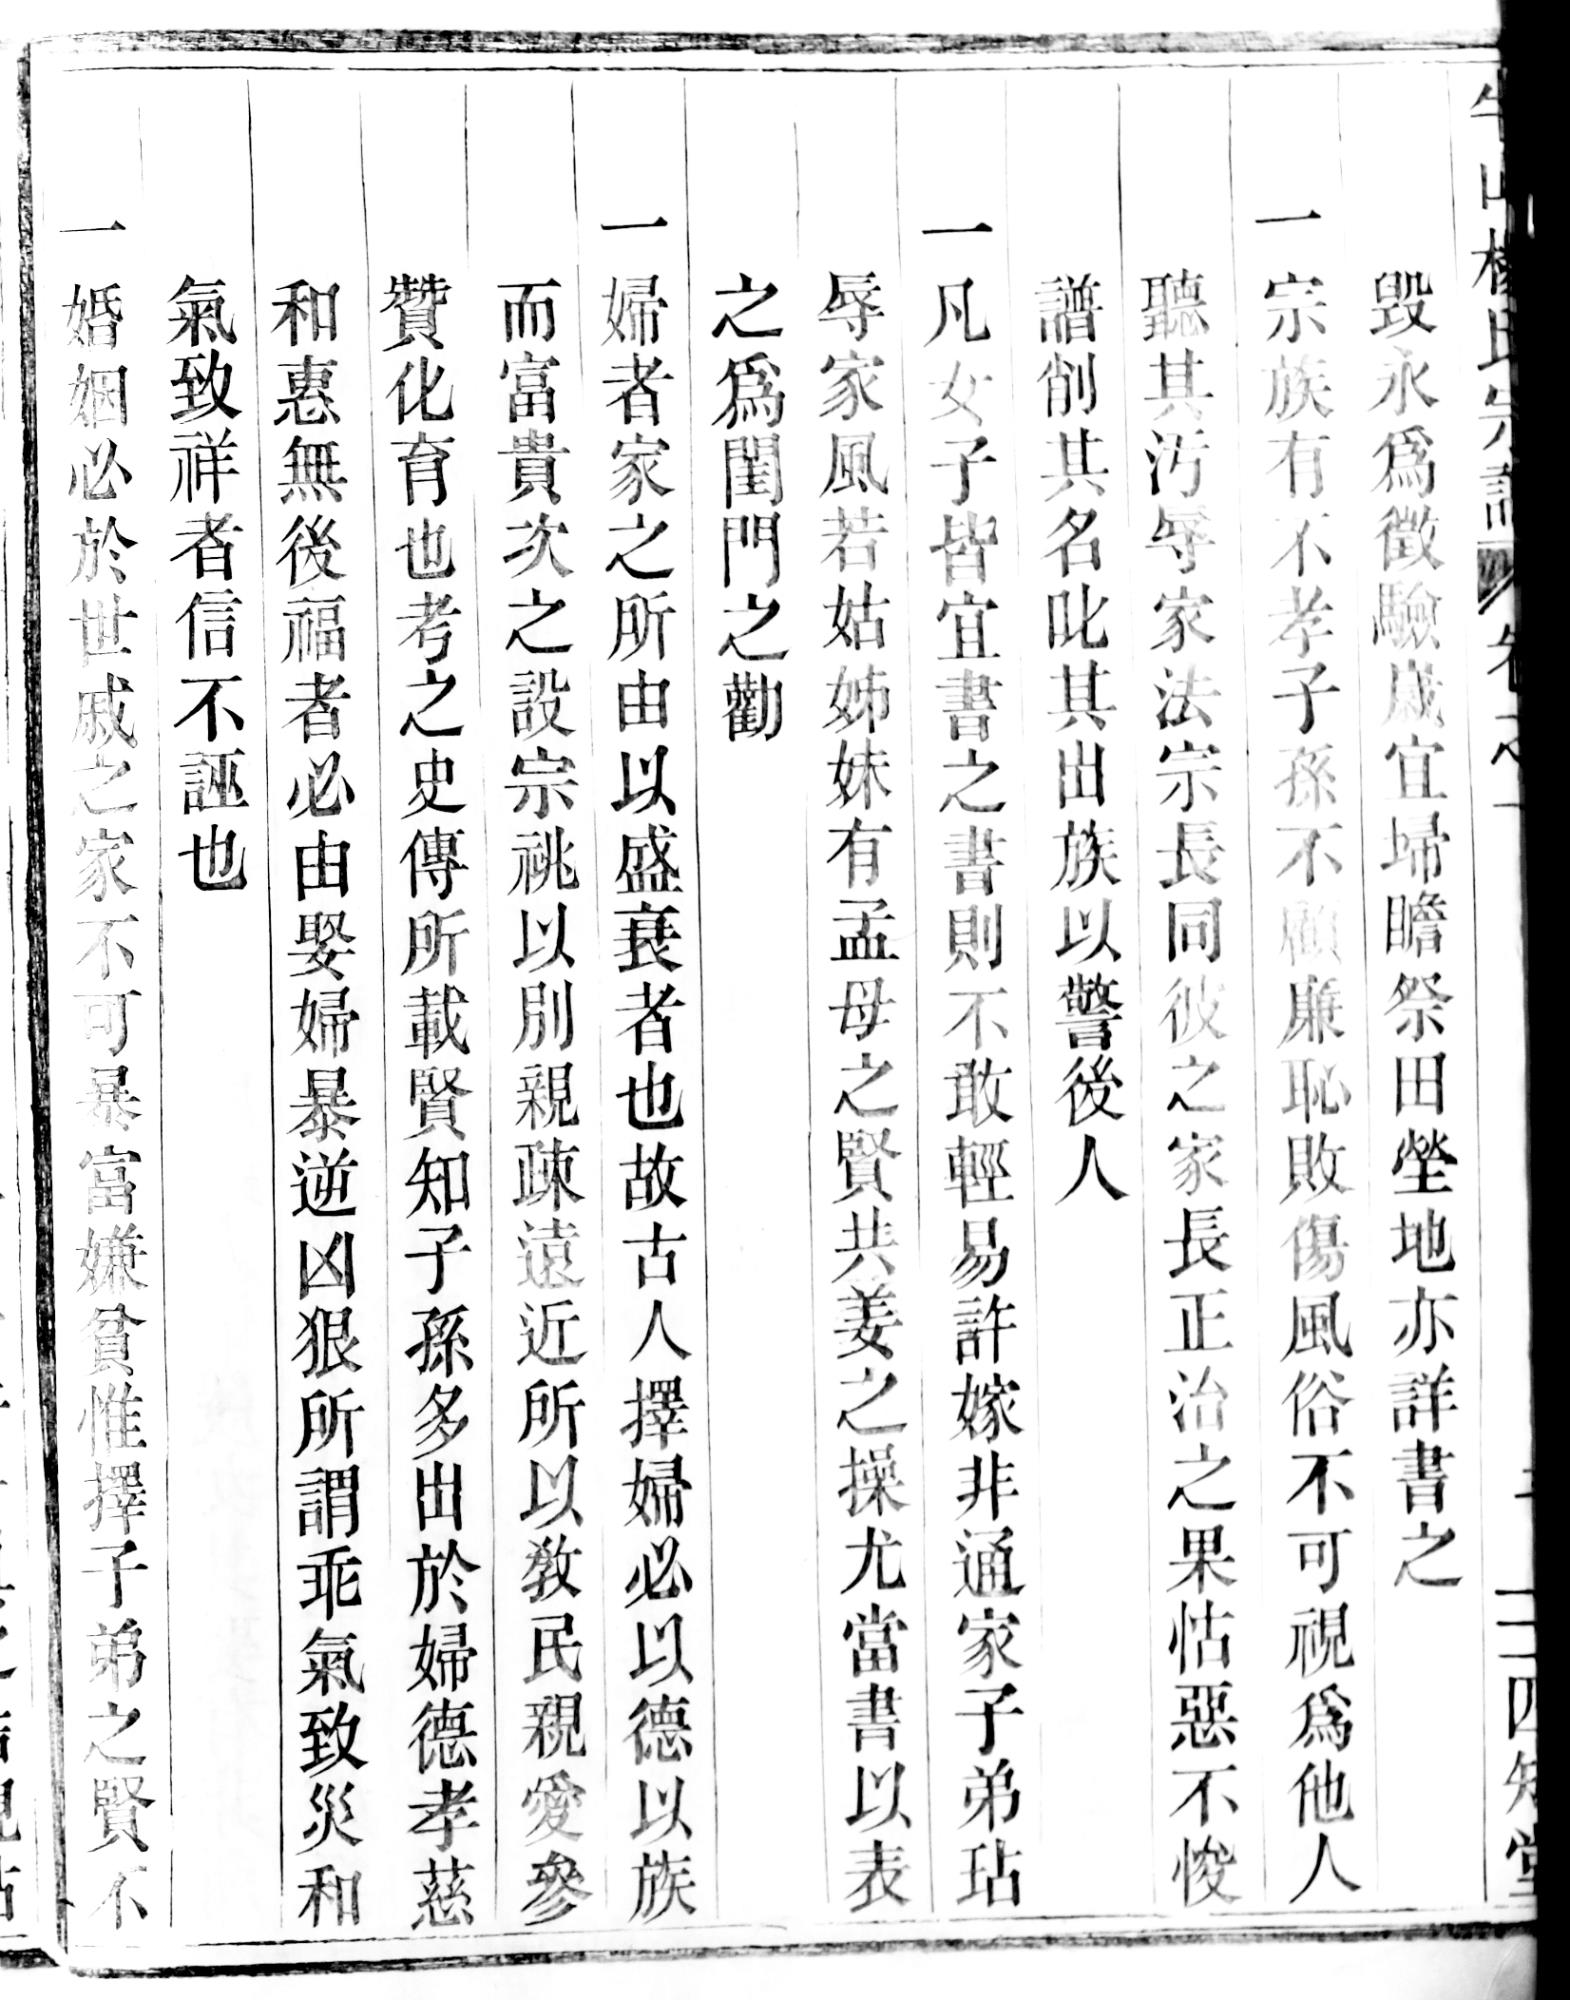 毀永爲徵驗歲宜埽瞻祭田塋地亦詳書之
一宗族有不孝子孫不顧廉恥敗傷風俗不可視爲他人
聽其汚辱家法宗長同彼之家長正治之果怙惡不悛
譜削其名叱其出族以警後人
一凡女子皆宜書之書則不敢輕易許嫁非通家子弟玷
辱家風若姑姊妹有孟母之賢共姜之操尤當書以表
之爲閨門之勸
一婦者家之所由以盛衰者也故古人擇婦必以德以族
而富貴次之設宗祧以別親疎遠近所以敎民親愛參
贊化育也考之史傳所載賢知子孫多出於婦德孝慈
和惠無後福者必由娶婦暴逆凶狠所謂乖氣致災和
氣致祥者信不誣也
一婚姻必於世戚之家不可暴富嫌貧惟擇子弟之賢不